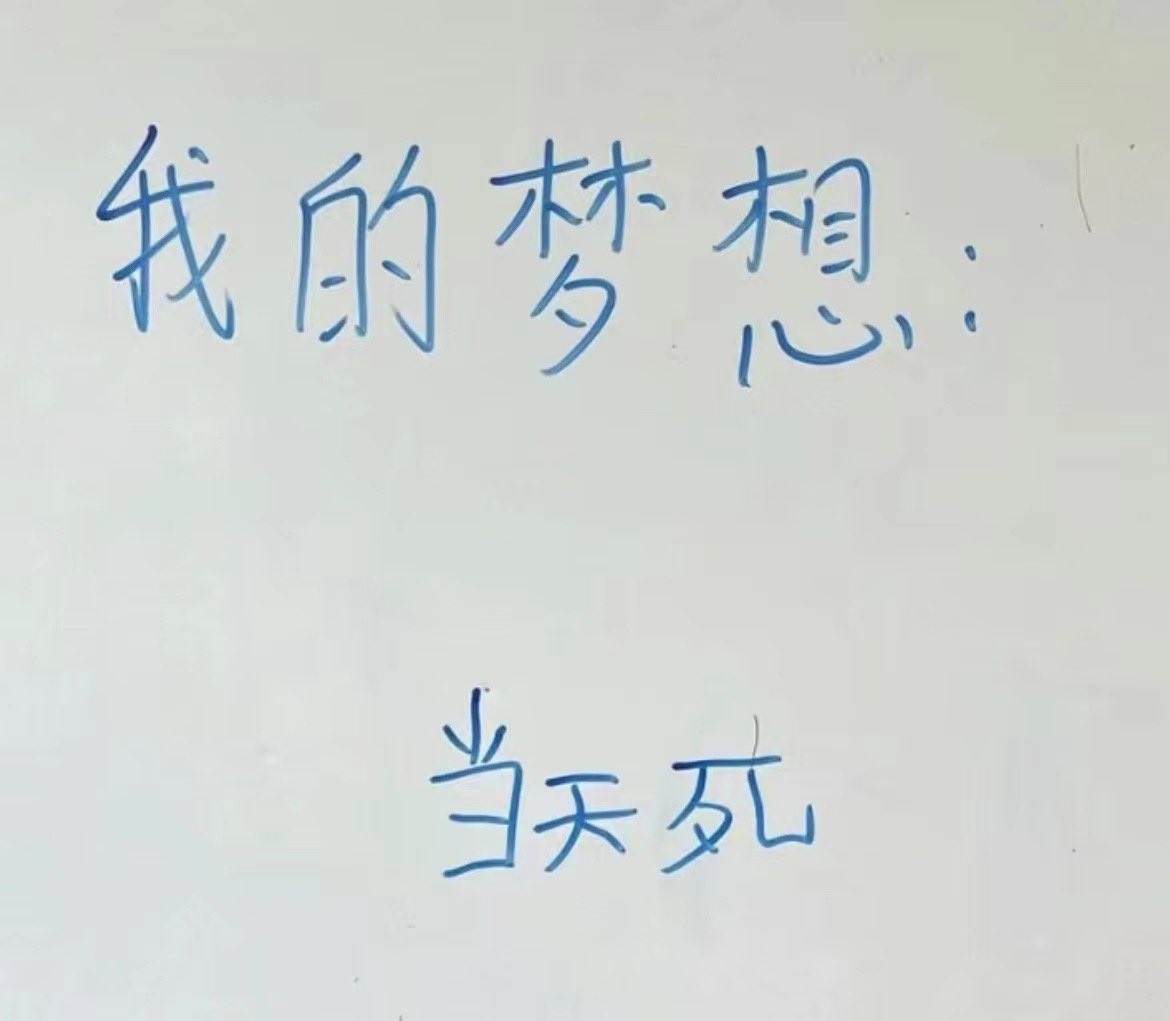 我的梦想：
当天死